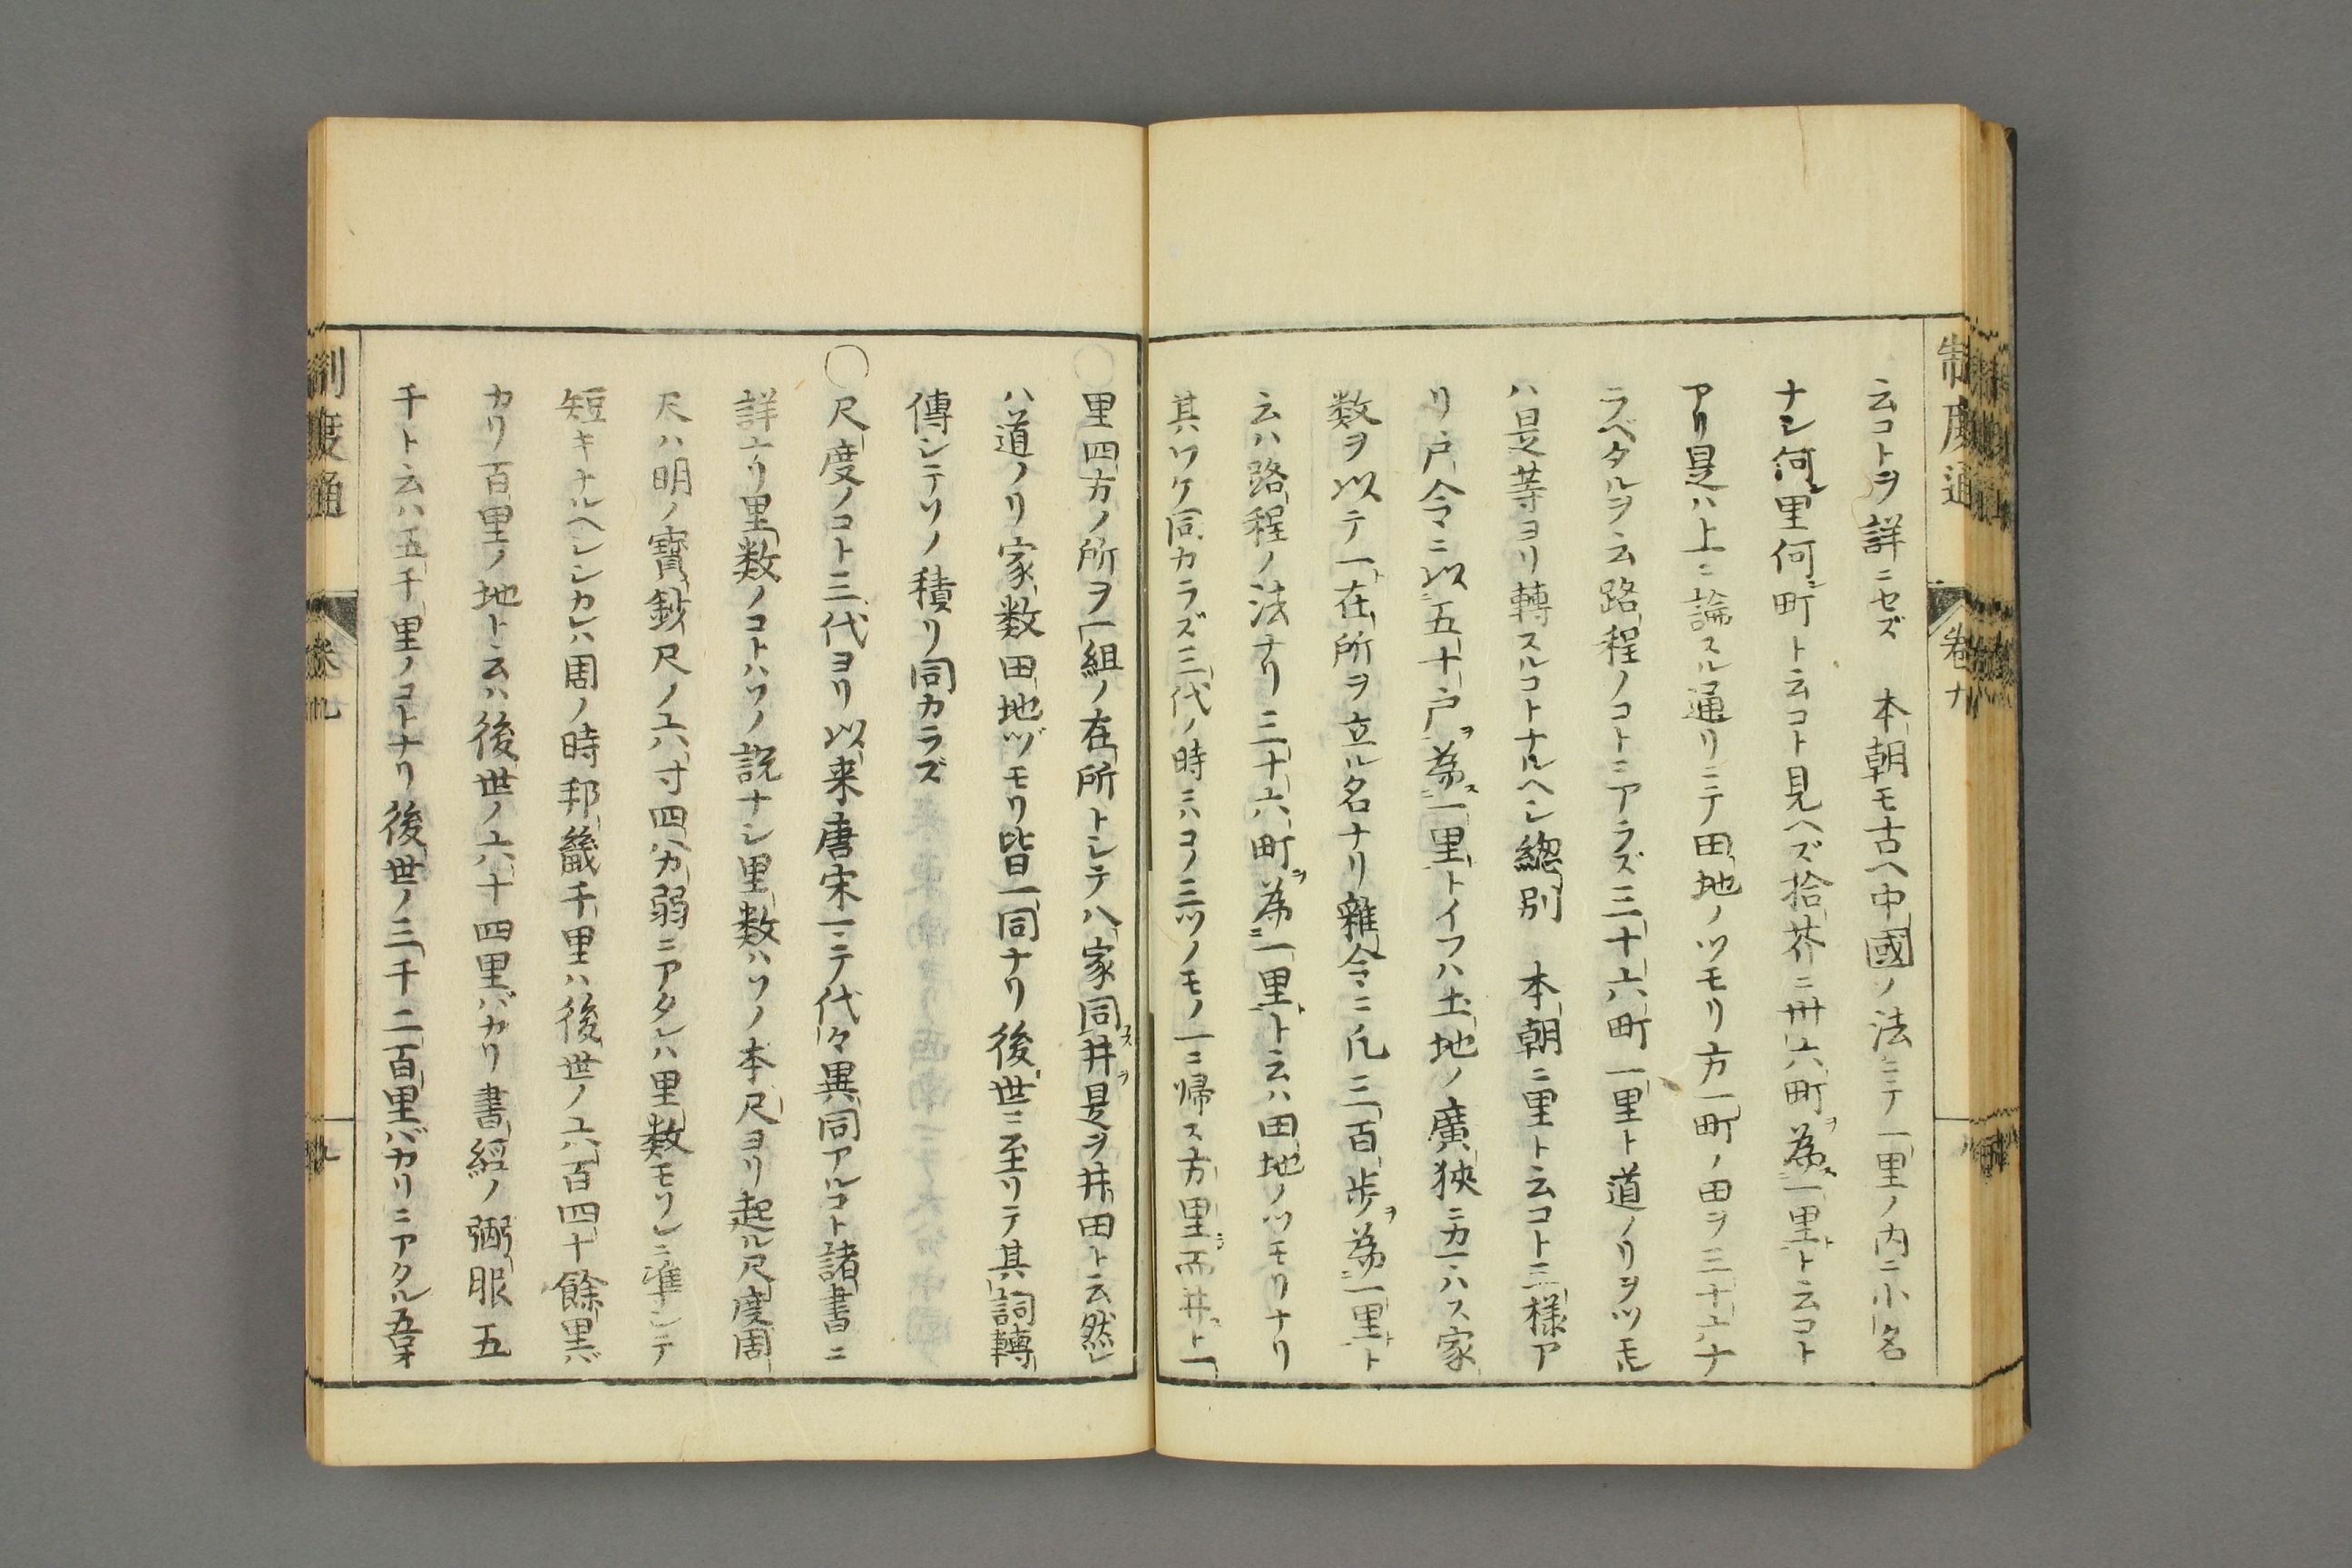 制度通
卷九
云コトヲ詳ニセズ　本朝モ古ヘ中國ノ法ニテ一里ノ内ニ小名
ナシ何里何町ト云コト見ヘズ拾芥ニ卅六町ヲ為ス一里ト云コト
アリ是ハ上ニ論スル通リニテ田地ノツモリ方一町ノ田ヲ三十六ナ
ラベタルヲ云路程ノコトニアラズ三十六町一里ト道ノリヲツモル
ハ是等ヨリ轉スルコトナルヘシ總別　本朝ニ里ト云コト三樣ア
リ戸令ニ以五十戸ヲ為ス一里トイフハ土地ノ廣狹ニカヽハス家
数ヲ以テ一在所ヲ立ル名ナリ雜令ニ凡三百歩ヲ為一里ト
云ハ路程ノ法ナリ三十六町ヲ為一里ト云ハ田地ノツモリナリ
其ワケ同カラズ三代ノ時ニハコノ三ツノモノ一ニ帰ス方里而井ト一
里四方ノ所ヲ一組ノ在所トシテ八家同井是ヲ井田ト云然レ
ハ道ノリ家数田地ヅモリ皆一同ナリ後世ニ至リテ其詞轉
傳シテソノ積リ同カラズ
○尺度ノコト三代ヨリ以来唐宋ニテ代々異同アルコト諸書ニ
詳ナリ里数ノコトハソノ説ナシ里数ハソノ本尺ヨリ起ル尺度周
尺ハ明ノ寳鈔尺ノ六寸四八カ弱ニアタレハ里数モソレニ準シテ
短キナルヘシシカレハ周ノ時邦畿千里ハ後世ノ六百四十餘里バ
カリ百里ノ地ト云ハ後世ノ六十四里バカリ書經ノ弼服五
千ト云ハ五千里ノコトナリ後世ノ三千二百里バカリニアタル吾才
制度通
卷九
九